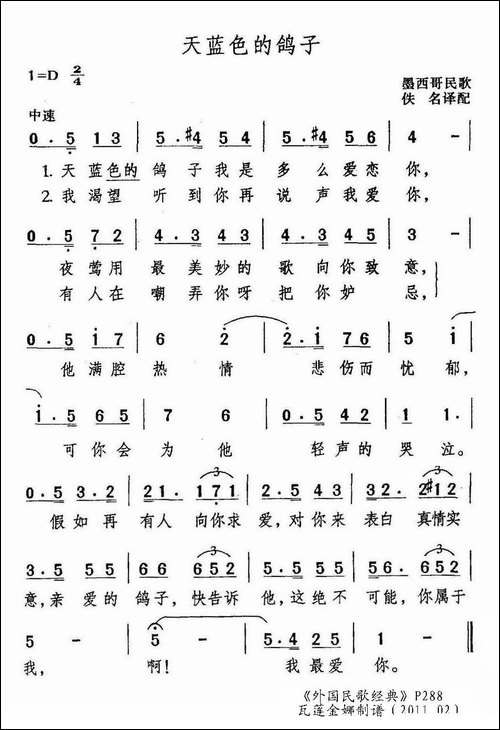 天蓝色的鸽子
1=D 2/4
墨西哥民歌
佚 名译配
中速
0. 5 1 3 | 5. #4 5 4 | 5. #4 5 6 | 4 - |
1. 天 蓝色的 鸽 子 我 是 多 么 爱 恋 你,
2. 我 渴 望 听 到 你 再 说 声 我 爱 你,
0. 5 7 2 | 4. 3 4 3 | 4. 3 4 5 | 3 - |
夜 莺 用 最 美 妙 的 歌 向 你 致 意,
有 人 在 嘲 弄 你 呀 把 你 妒 忌,
0. i i 7 | 6 2 | 2. i 7 6 | 5 i |
他 满 腔 热 情 悲 伤 而 忧 郁,
i. 5 6 5 | 7 6 | 0. 5 4 2 | 1 1. |
可 你 会 为 他 轻 声 的 哭 泣。
0. 5 3. 2 | 2 1. 1 7 1 | 0. 5 3 4 | 3 2. 2 #1 2 |
假 如 再 有 人 向你求 爱, 对 你 来 表白 真情实
3. 5 5 5 | 6 6 6 5 2 | 5. 5 5 5 | 6. 6 6 5 2 |
意, 亲 爱 的 鸽子, 快告诉 他, 这 绝 不 可能, 你属于
5 - | 5 - | 5. 4 2 5 | 1 - ‖
我, 啊! 我 最 爱 你。
《外国民歌经典》P288
瓦莲金娜制谱(2011.02)